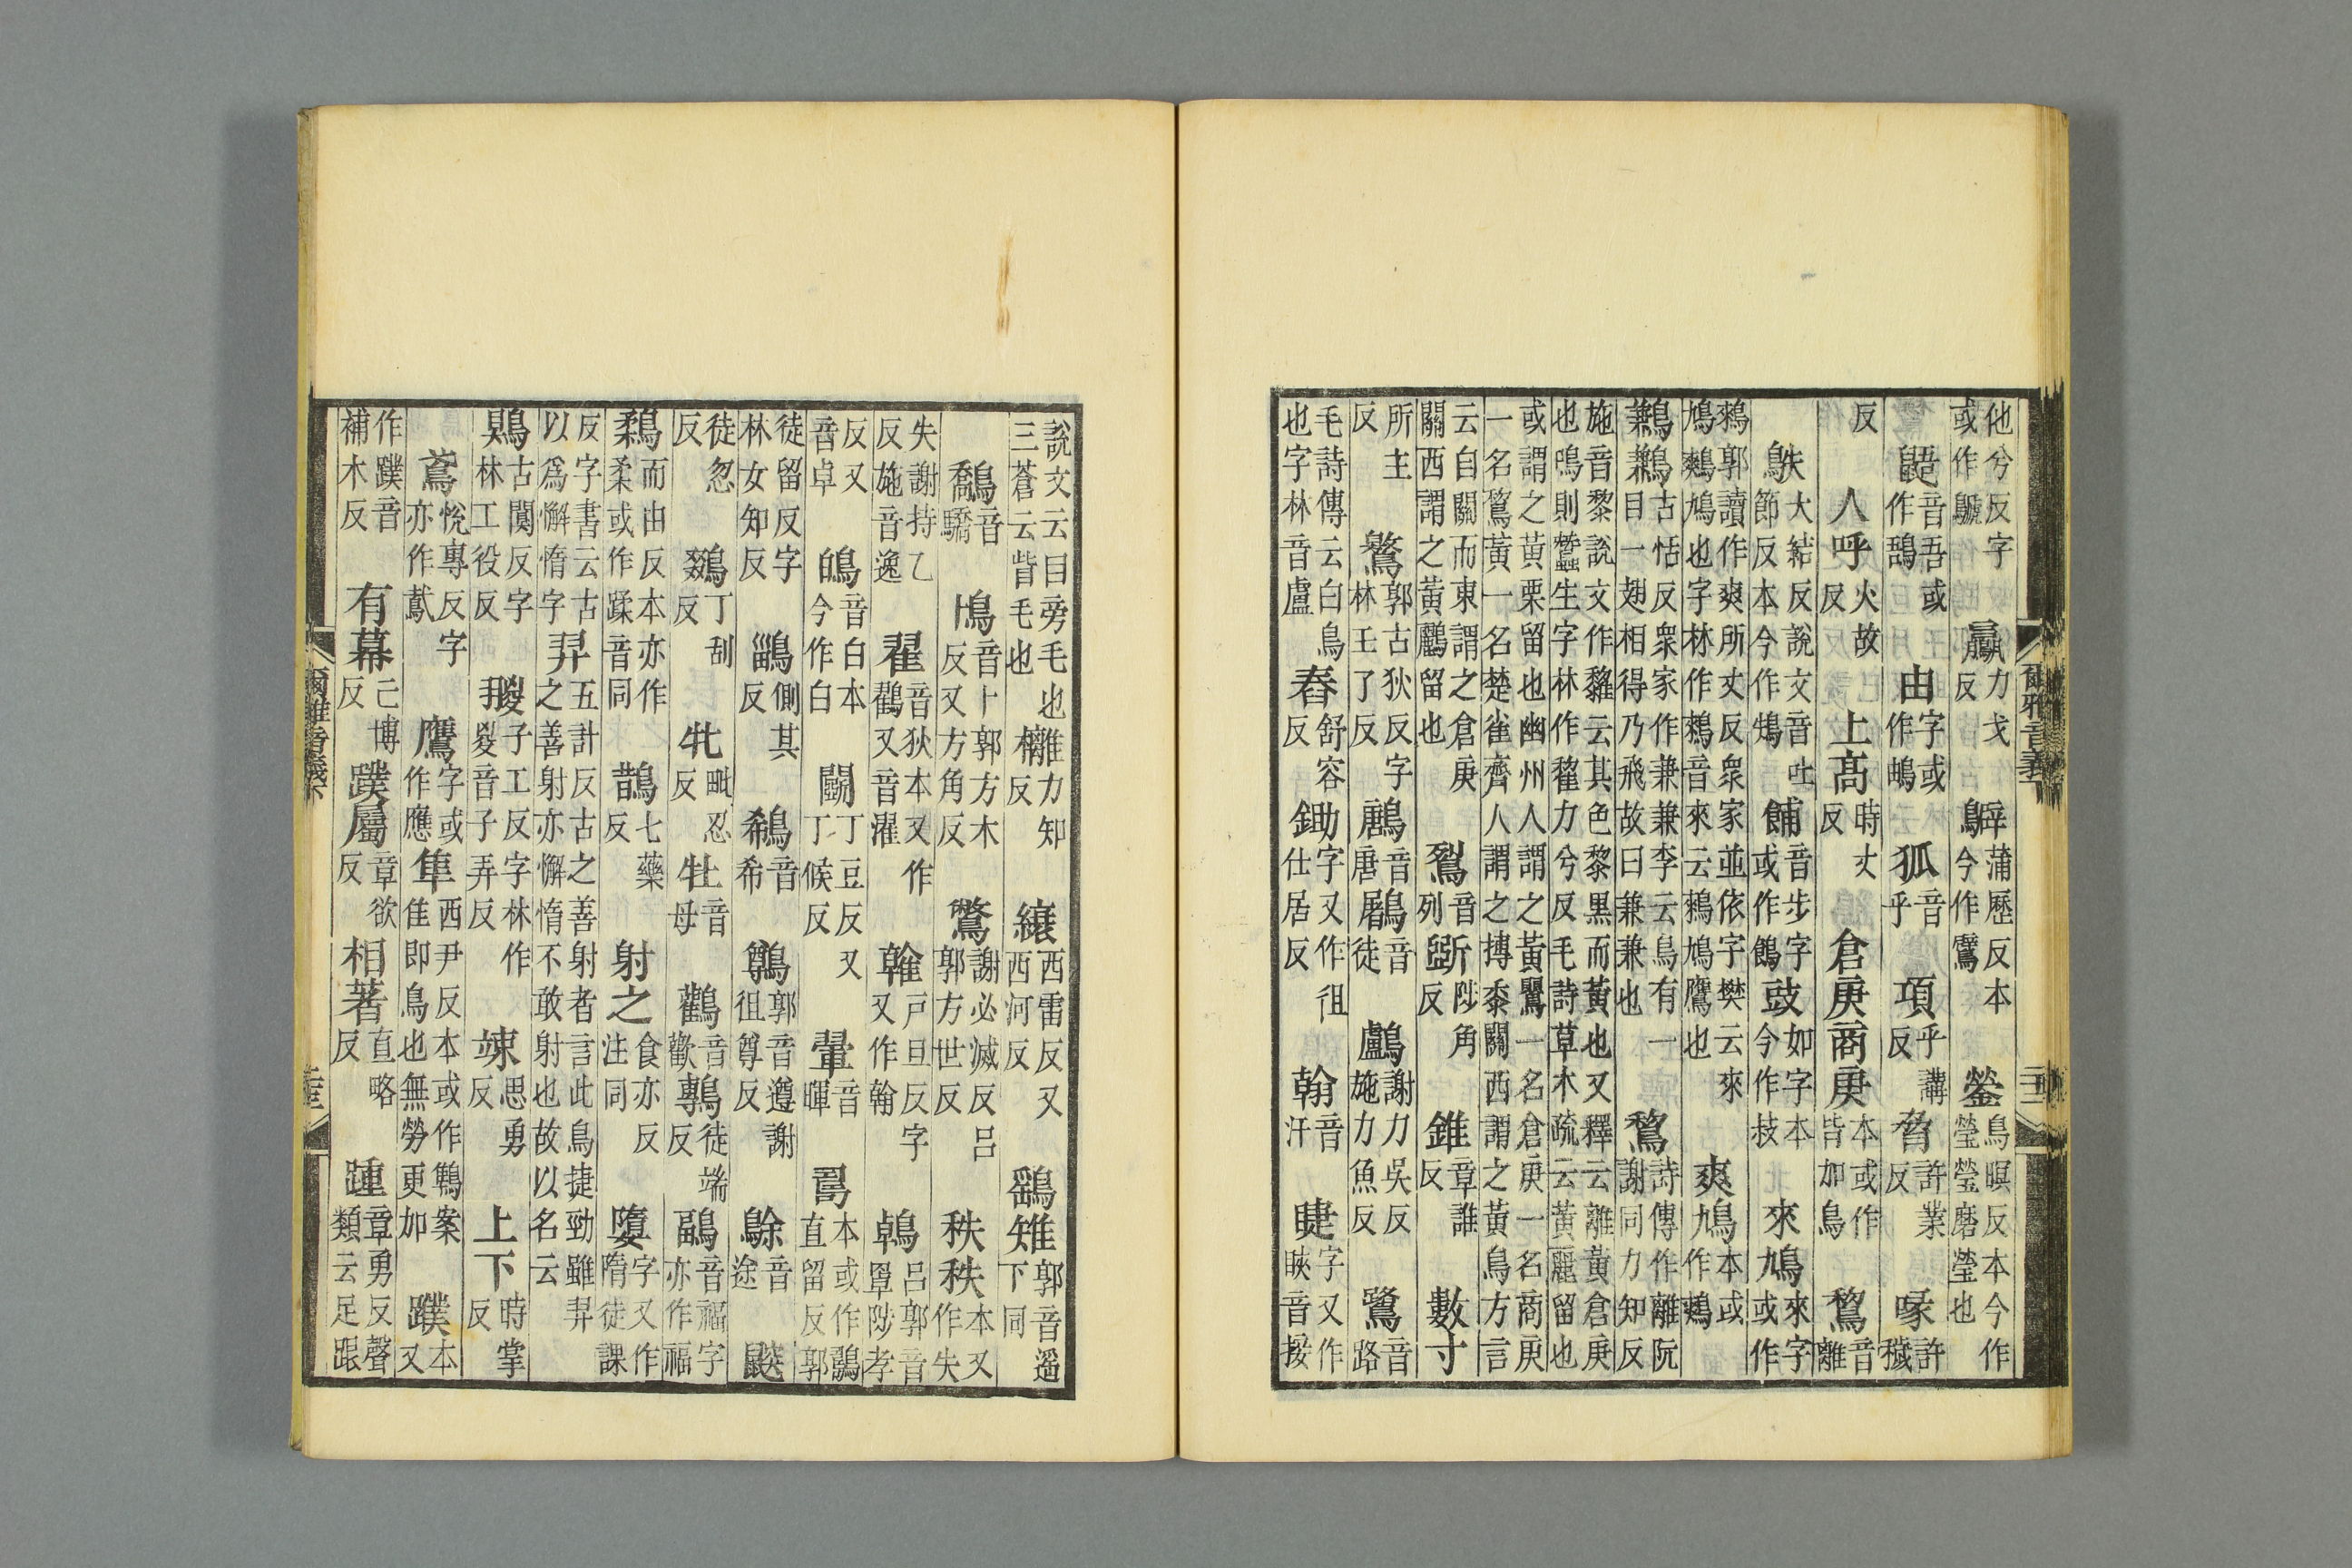 他兮反字或作鷉 鸁力戈反 鷿蒲歷反本今作鷿 鎣烏暝反本今作瑩瑩磨瑩也
鼯音吾或作䳱 由字或作䳑 狐音乎 項乎講反 脅許業反 喙許穢
反 人呼火故反 上高時丈反 倉庚商庚本或作皆加鳥 鵹音離
鴩大結反說文音吐節反本今作鴩 餔音步字或作餔 豉如字本今作枝 來鳩來字或作
鶆郭讀作爽所丈反眾家並依字樊云來鳩鷞鳩也字林作鶆音來云鶆鳩鷹也 爽鳩本或作鷞
鶼鶼古恬反眾家作兼兼李云鳥有一目一翅相得乃飛故曰兼兼也 鵹詩傳作離阮謝同力知反
施音黎說文作雞云其色黎黑而黃也又釋云離黃倉庚也鳴則蠶生字林作雞力兮反毛詩草木疏云黃麗留也
或謂之黃栗留也幽州人謂之黃鸎一名倉庚一名商庚一名鵹黃一名楚雀齊人謂之摶黍關西謂之黃鳥方言
云自關而東謂之倉庚關西謂之黃鸝留也 鴷音列 斲陟角反 錐章誰反 數寸
所主反 鸄郭古狄反字林工了反 鶶音唐 鷵音徒 鸕謝力吳反施力魚反 鷺音路
毛詩傳云白鳥也字林音盧 舂舒容反 鋤字又作徂仕居反 翰音汗 睫字又作䀹音接
說文云目旁毛也三蒼云眥毛也 離力知反 纕西雷反又西河反 鷂雉郭音遥下同
鷮音驕 鳪音卜郭方木反又方角反 鷩謝必滅反呂郭方世反 秩秩本又作失
失謝持乙反施音逸 翟音狄本又作鸐又音濯 雗戶旦反字又作翰 鵫呂郭音罩陟孝
反又音卓 鵫音白本今作白 鬭丁豆反又丁候反 翬音暉 鷽本或作鷽直留反郭
徒留反字林女知反 鶅側其反 鵗音希 鷷郭音遵謝徂尊反 鵌音途 鼵
徒忽反 鵽丁刮反 牝毗忍反 牡音母 鸛音歡 鷒徒端反 鶝音福字亦作福
鶔而由反本亦作柔或作蹂音同 鵲七藥反 射之食亦反注同 墮字又作隋徒課
反字書云古以為懈惰字 羿五計反古之善射者言此鳥捷勁雖羿之善射亦懈惰不敢射也故以名云
鶪古闃反字林工役反 鬷子工反字林作鬷音子弄反 竦思勇反 上下時掌反
鳶悅專反字亦作鳶 鷹字或作應 隼西尹反本或作鵻案隹即鳥也無勞更加 蹼本又
作蹼音補木反 有幕亡博反 蹼屬章欲反 相著直略反 踵章勇反聲類云足跟
爾雅音義下